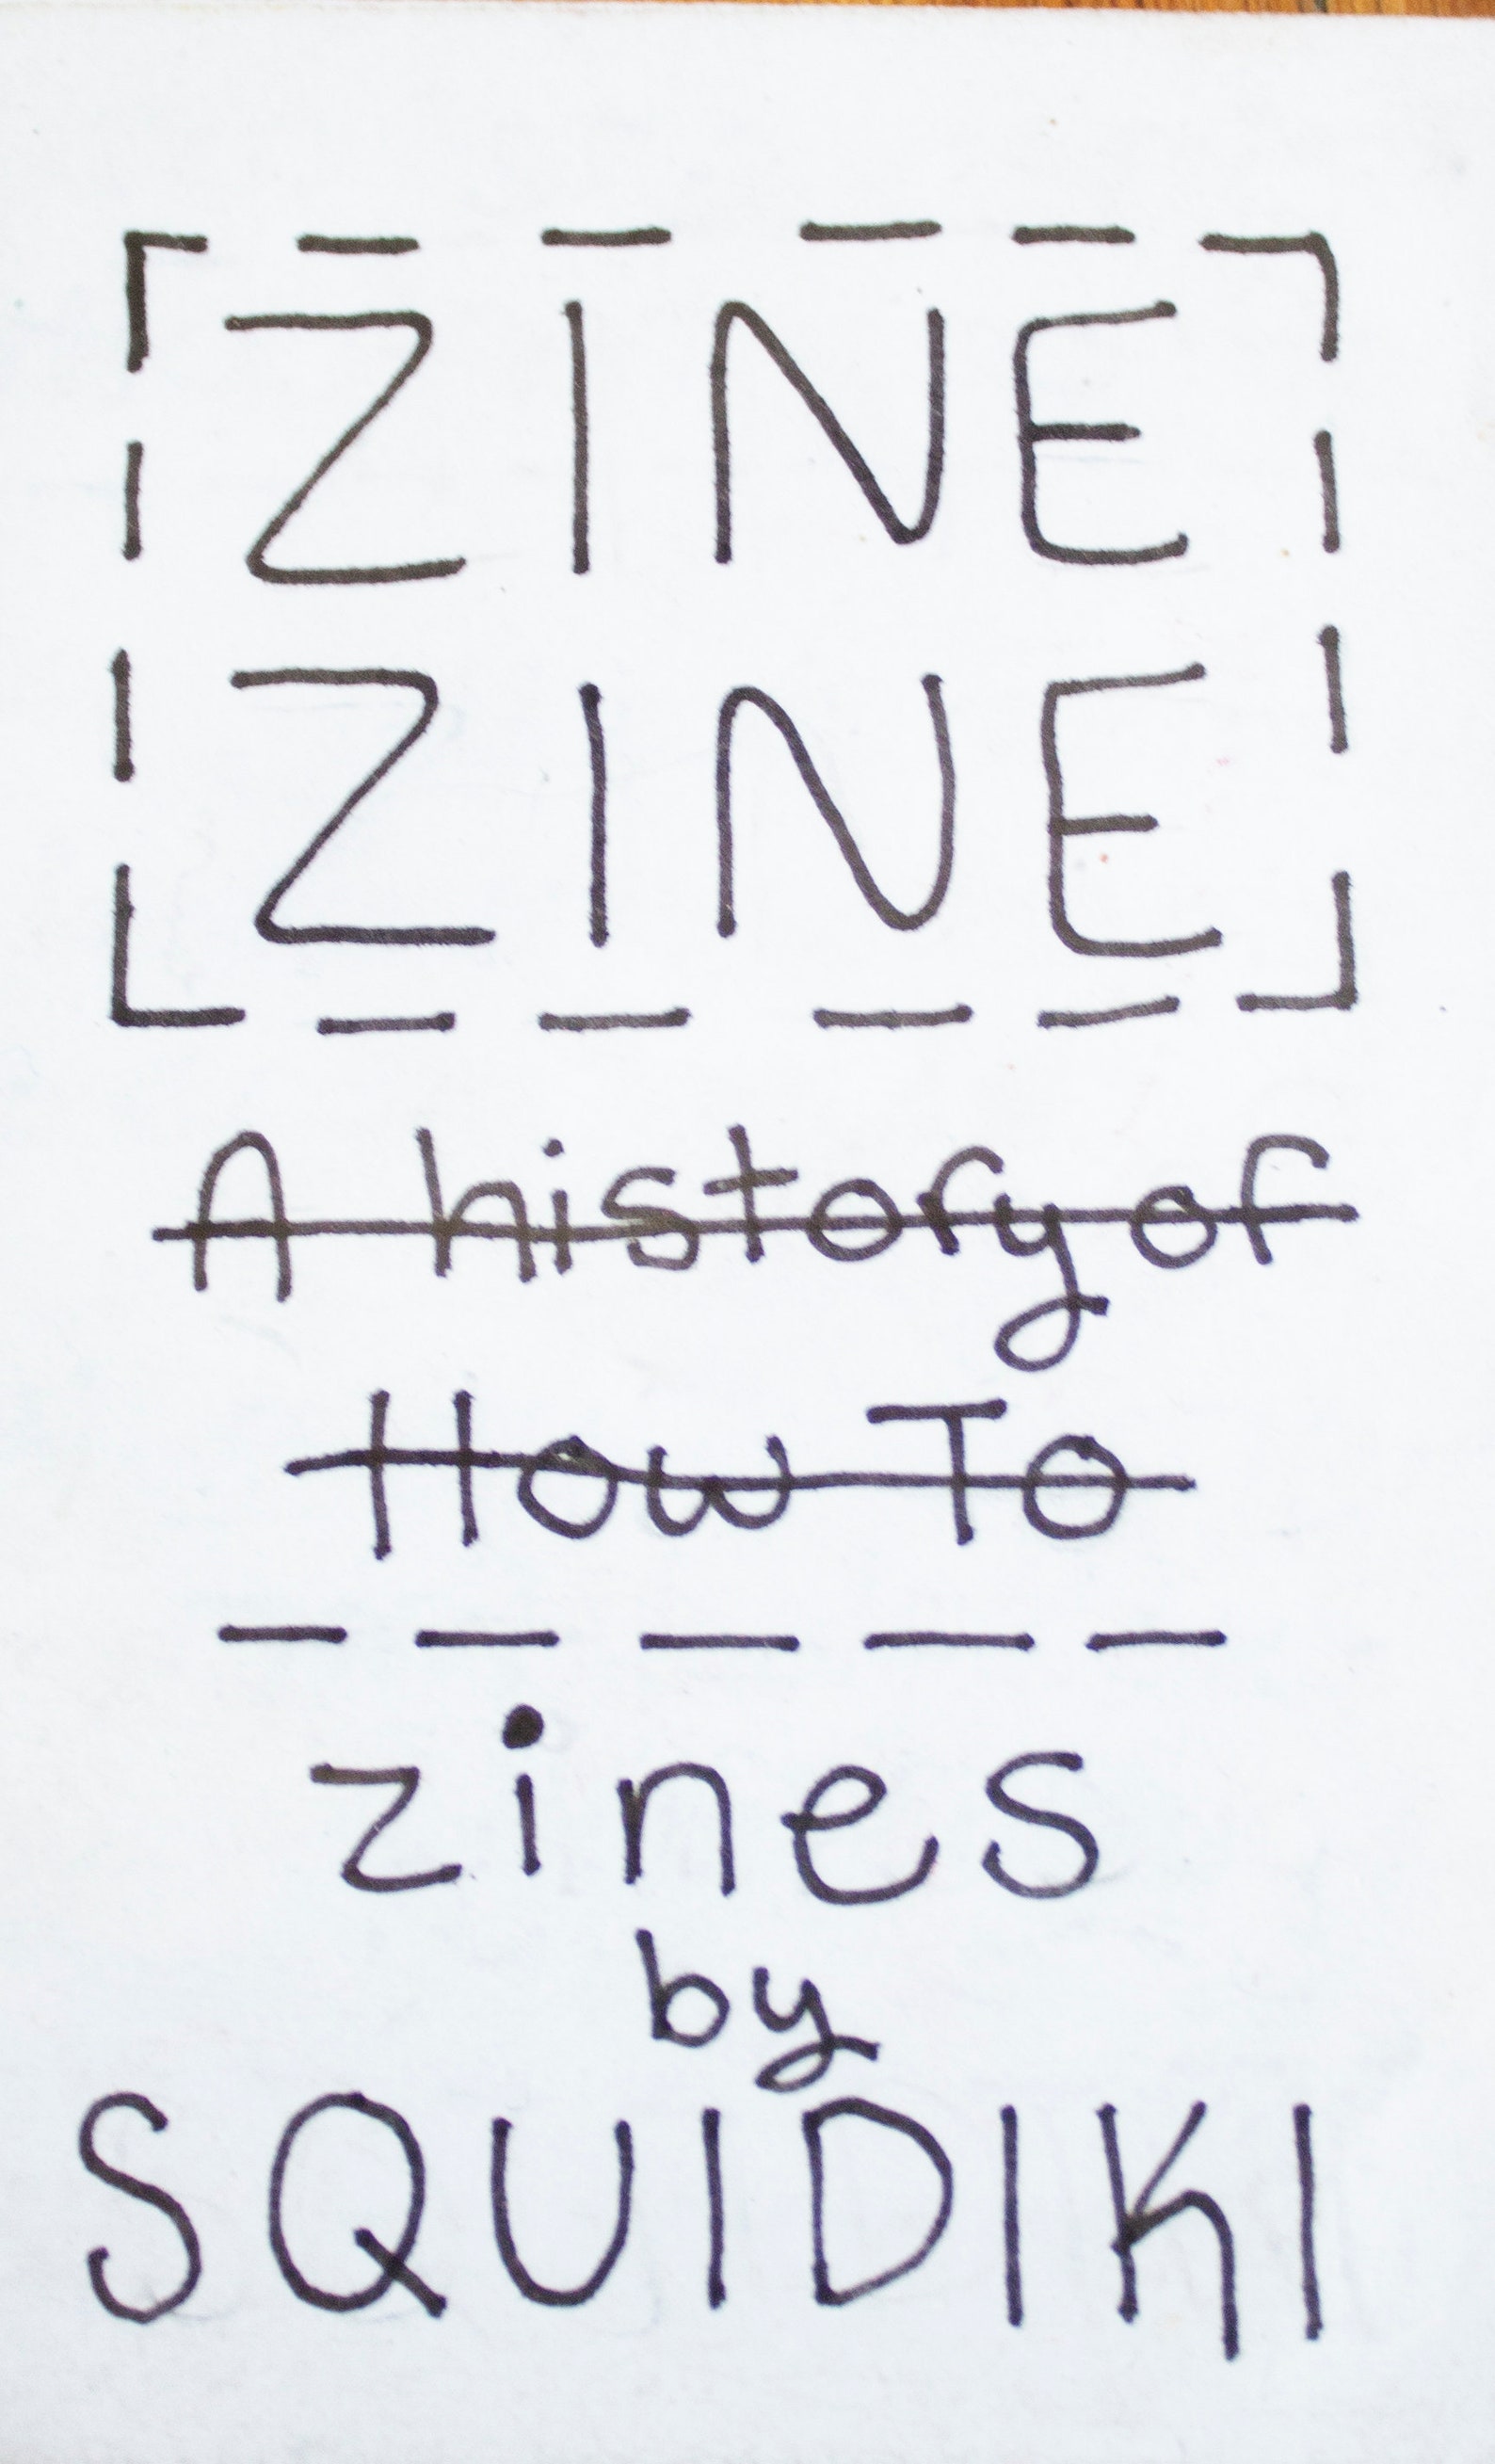 ZINE
ZINE
A history of
How To
zines
by
SQUIDIKI